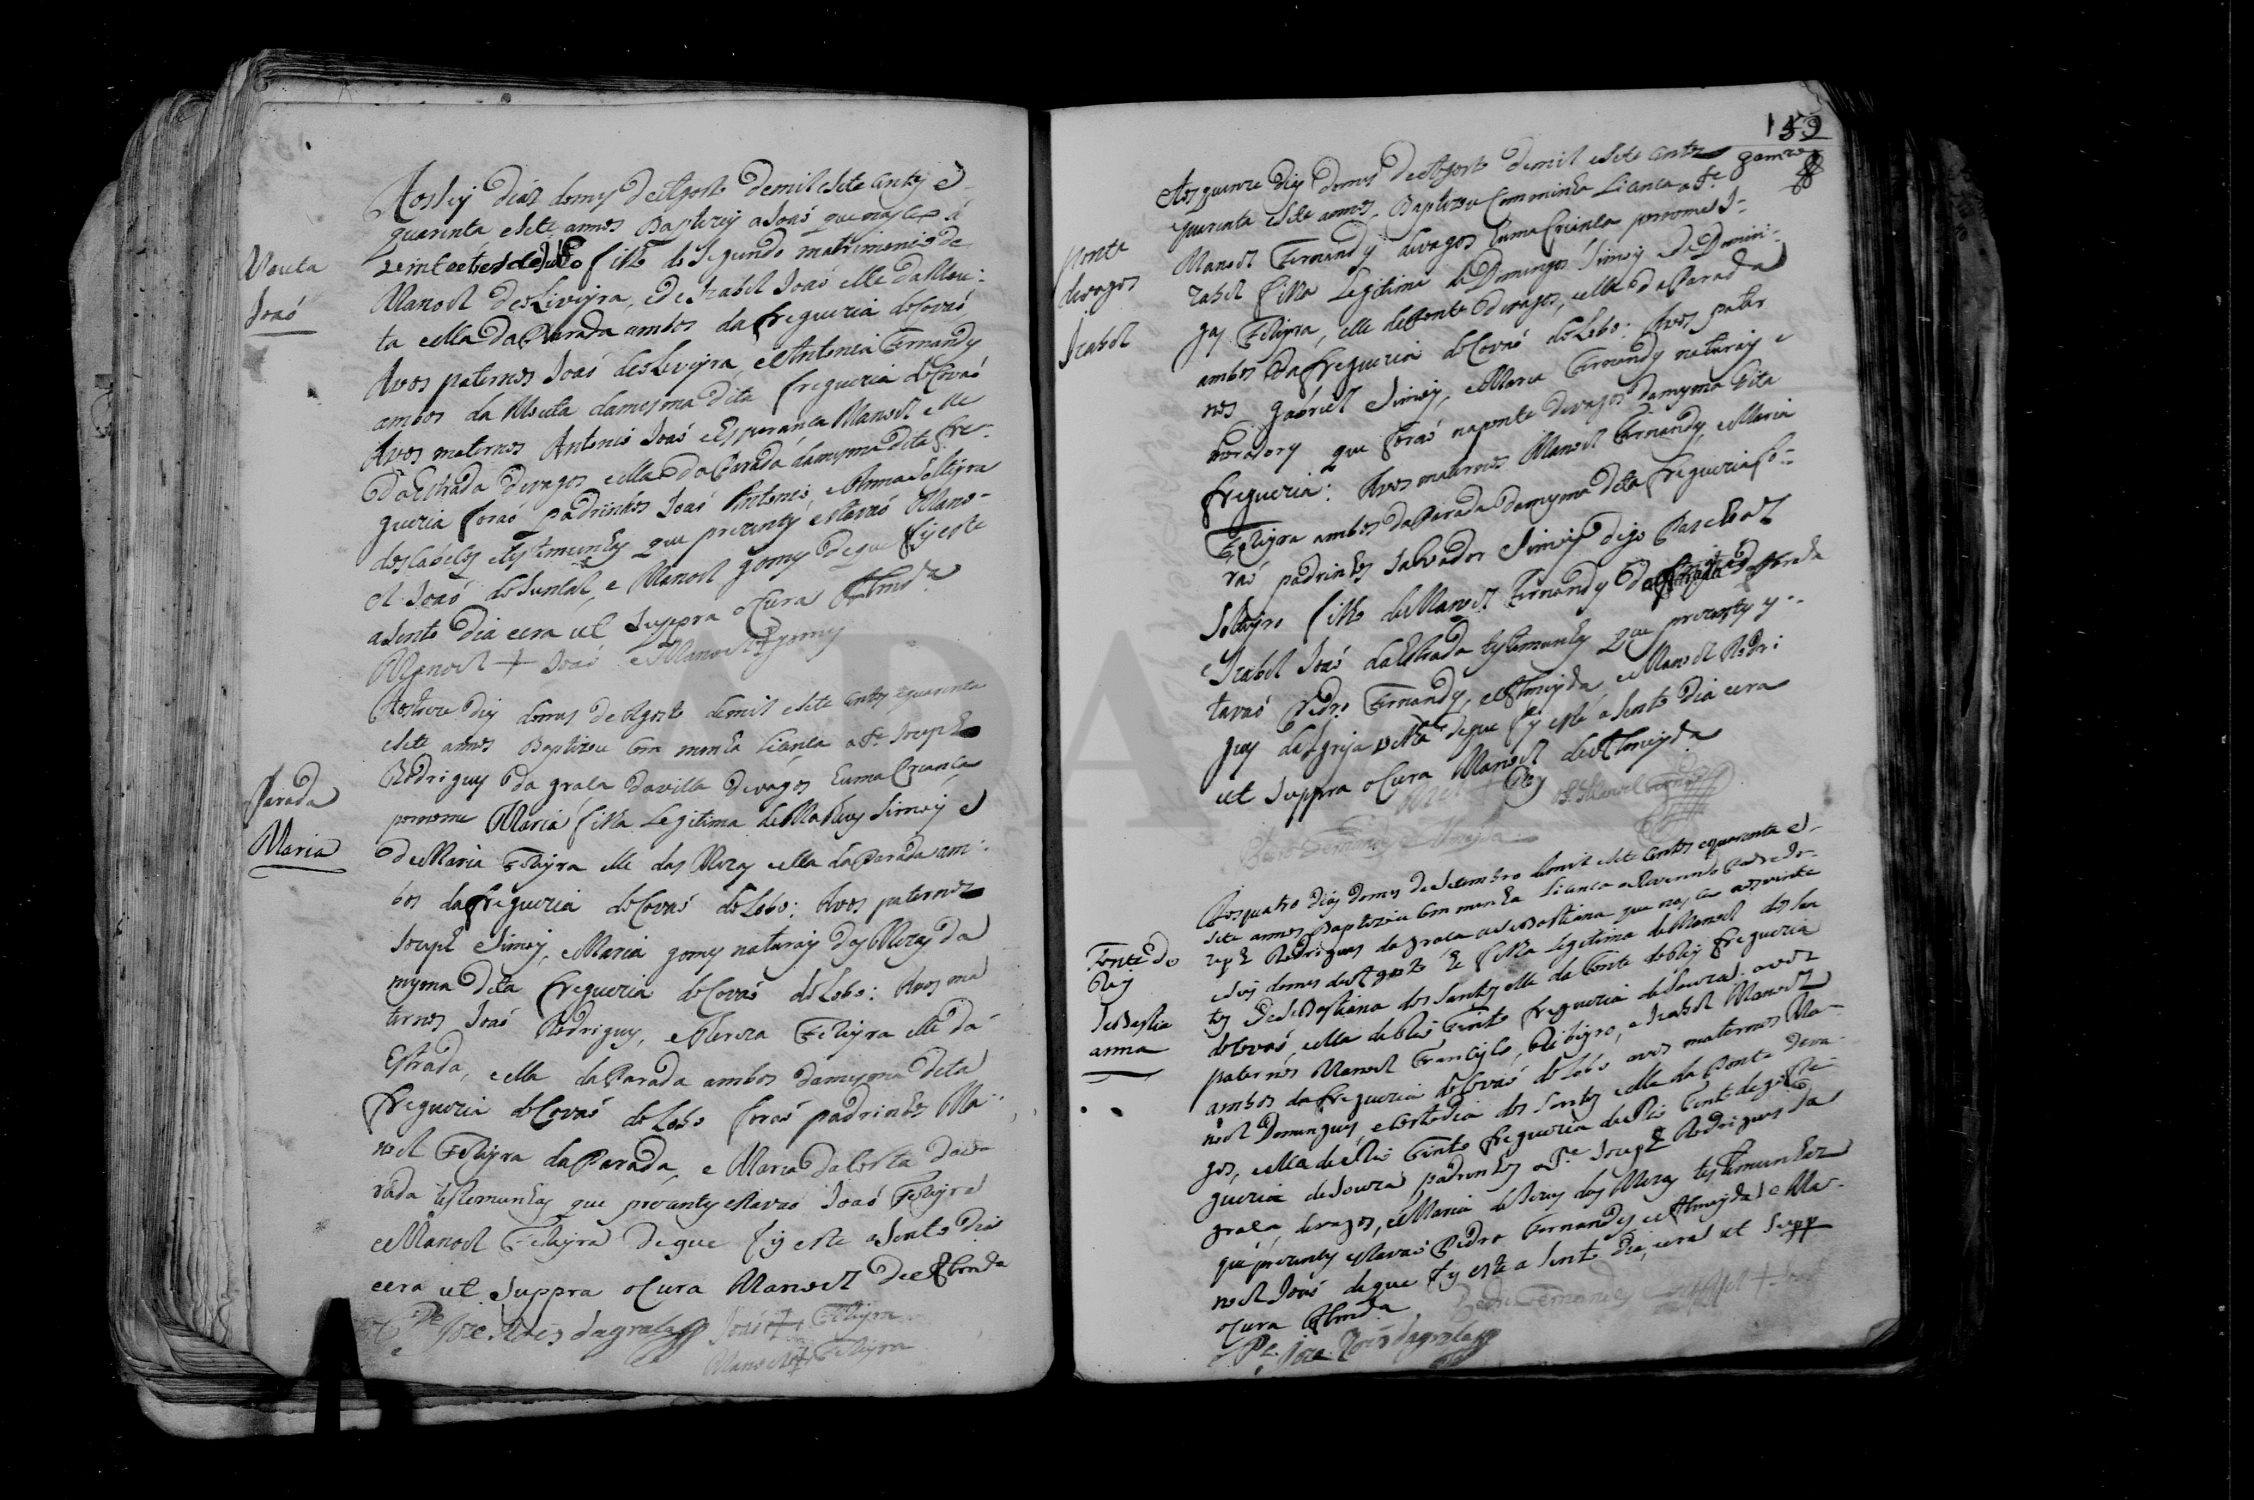 Mouta
Joaó
Aos seis dias do mes de Agosto de mil e sete centos e
quarenta e sete annos Baptizey a Joaó que nasceo a
vinte e tres de Julho filho do segundo matrimonio de
Manoel de oLiveyra, e de Izabel Joaó elle da Mou:
ta e ella da Parada ambos da freguezia de Covaó
Avos paternos Joaó de oLiveyra, e Antonia Fernandes
ambos da Mouta da mesma dita freguezia de Covaó
Avos maternos Antonio Joaó e Esperança Manoel elle
da Estrada de vagos e ella da Parada da mesma dita fre-
guezia foraó padrinhos Joaó Antonio, e Anna solteyra
dos Cabeços e testemunhas que prezentes estavaó Mano-
el Joaó do , e Manoel gomes de que fis este
asento dia e era ut suppra o Cura Almda
Manoel + Joaó e Manoel + gomes
Parada
Maria
Aos treze dias do mes de Agosto de mil e sete centos e quarenta
e sete annos Baptizou com minha Licença o Pe. Joseph
Rodrigues da grala da villa de vagos huma Criança
por nome Maria filha Legitima de Matheus Simois e
de Maria Ferreyra elle das Mezas e ella da Parada am:
bos da freguezia de Covaó do Lobo: Avos paternos
Joseph Simois, e Maria gomes naturais das Mezas da
mesma dita freguezia de Covaó do Lobo: Avos ma
ternos Joaó Rodrigues, e Thereza Ferreyra elle da
Estrada, e ella da Parada ambos da mesma dita
freguezia de Covaó do Lobo foraó padrinhos Ma:
noel Ferreyra da Parada, e Maria da Costa da Pa
rada testemunhas que prezentes estavaó Joaó Ferreyra
e Manoel Ferreyra de que fis este asento dia
e era ut suppra o Cura Manoel de Almda
O Pe Joze Roiz da grala Joaó + Ferreyra
Manoel + Ferreyra
159
gomez
Ponte
de vagos
Izabel
Aos quinze dias do mes de Agosto de mil e sete centos
quarenta e sete annos, Baptizou com minha Licença o Pe.
Manoel Fernandes de vagos huma Criança por nome I-
zabel filha Legitima de Domingos Simois e de Domin:
gas Ferreyra, elle da Ponte de vagos, e ella da Parada
ambos da freguezia de Covaó do Lobo: Avos pater
nos gabriel Simois, e Maria Fernandes naturais e
moradores que foraó na ponte de vagos da mesma dita
freguezia: Avos maternos Manoel Fernandes, e Maria
Ferreyra ambos da Parada da mesma dita freguezia fo:
raó padrinhos Salvador Simois digo Paschoal
Solteyro filho de Manoel Fernandes da Estrada
e Izabel Joaó da Estrada testemunhas que prezentes es:
tavaó Pedro Fernandes, e Almeyda, e Manoel Rodri:
gues da Igreja de que fis este asento dia e era
ut suppra o Cura Manoel de Almeyda
O Pe. Manoel Fernandes
Pedro Fernandes e Almeyda
Fonte do
Rey
Sebastia
anna
Aos quatro dias do mes de Setembro de mil e sete centos e quarenta e
sete annos Baptizou com minha Licença o Reverendo Padre Jo-
zeph Rodrigues da grala a Sebastiana que nasceo aos vinte
e seis do mes de Agosto he filha Legitima de Manoel dos San
tos e de Sebastiana dos Santos elle da Fonte do Rey freguezia
de Covaó, e ella de Rio Tinto freguezia de Souza: avos
paternos Manoel Francisco, Ribeyro, e Izabel Manoel
ambos da freguezia de Covaó do Lobo avos maternos Ma-
noel Domingues, e Custodia dos Santos elle da Ponte de va-
gos, e ella de Rio Tinto freguezia de Rio Tinto digo fre-
guezia de Souza padrinhos o Pe. Joseph Rodrigues da
grala, de vagos, e Maria de Jezus das Mezas testemunhas
que prezentes estavaó Pedro Fernandes, e Almeyda, e Ma-
noel Joaó de que fis este asento dia, e era ut supp
o Cura Almda
Pedro Fernandes e Almda Mel + Joaó
O Pe. Joze Roiz da grala